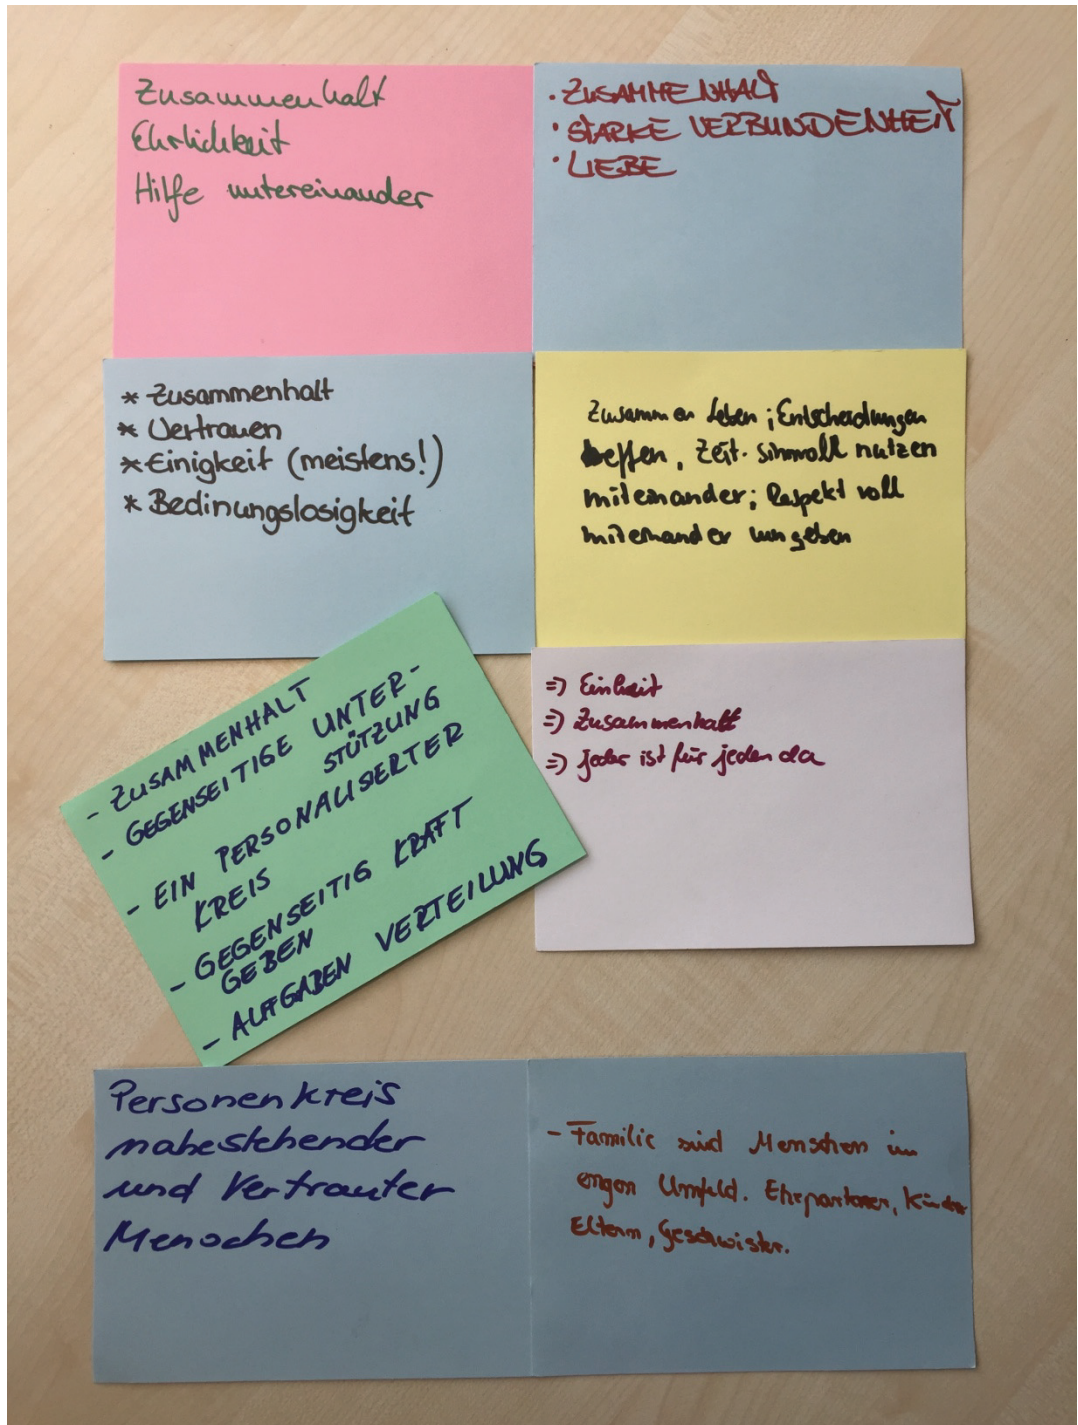 Zusammenhalt
Ehrlichkeit
Hilfe untereinander
· ZUSAMMENHALT
· STARKE VERBUNDENHEIT
· LIEBE
* Zusammenhalt
* Vertrauen
* Einigkeit (meistens!)
* Bedinungslosigkeit
Zusammen leben ; Entscheidungen
treffen, Zeit. sinnvoll nutzen
miteinander; Respekt voll
miteinander umgehen
- ZUSAMMENHALT
- GEGENSEITIGE UNTER-
STÜTZUNG
- EIN PERSONALISIERTER
KREIS
- GEGENSEITIG KRAFT
GEBEN
- AUFGABEN VERTEILUNG
=> Einheit
=> Zusammenhalt
=> jeder ist für jeden da
Personenkreis
nahestehender
und Vertrauter
Menschen
- Familie sind Menschen im
engen Umfeld. Ehepartner, Kinder
Eltern, Geschwister.